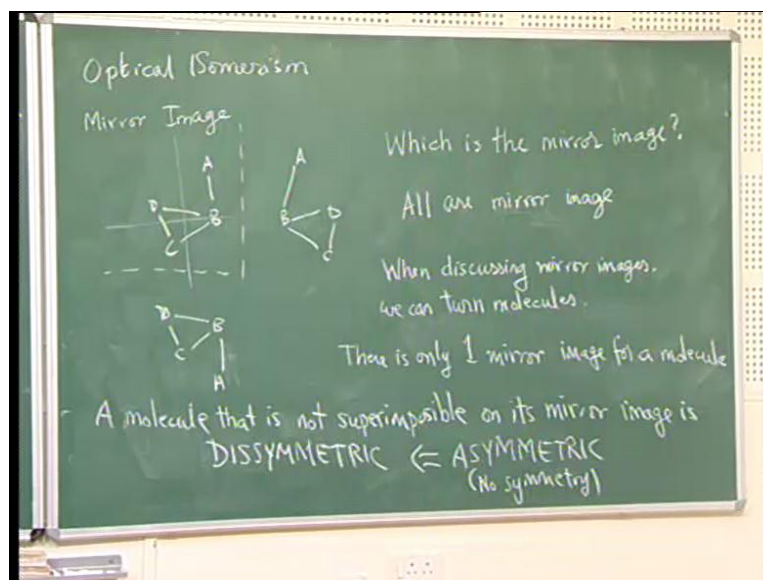 Optical Isomerism
Mirror Image
A
D
B
C
A
B
D
C
D
B
C
A
Which is the mirror image?
All are mirror image
When discussing mirror images.
we can turn molecules.
There is only 1 mirror image for a molecule
A molecule that is not superimposible on its mirror image is
DISSYMMETRIC ⇐ ASYMMETRIC
(No symmetry)